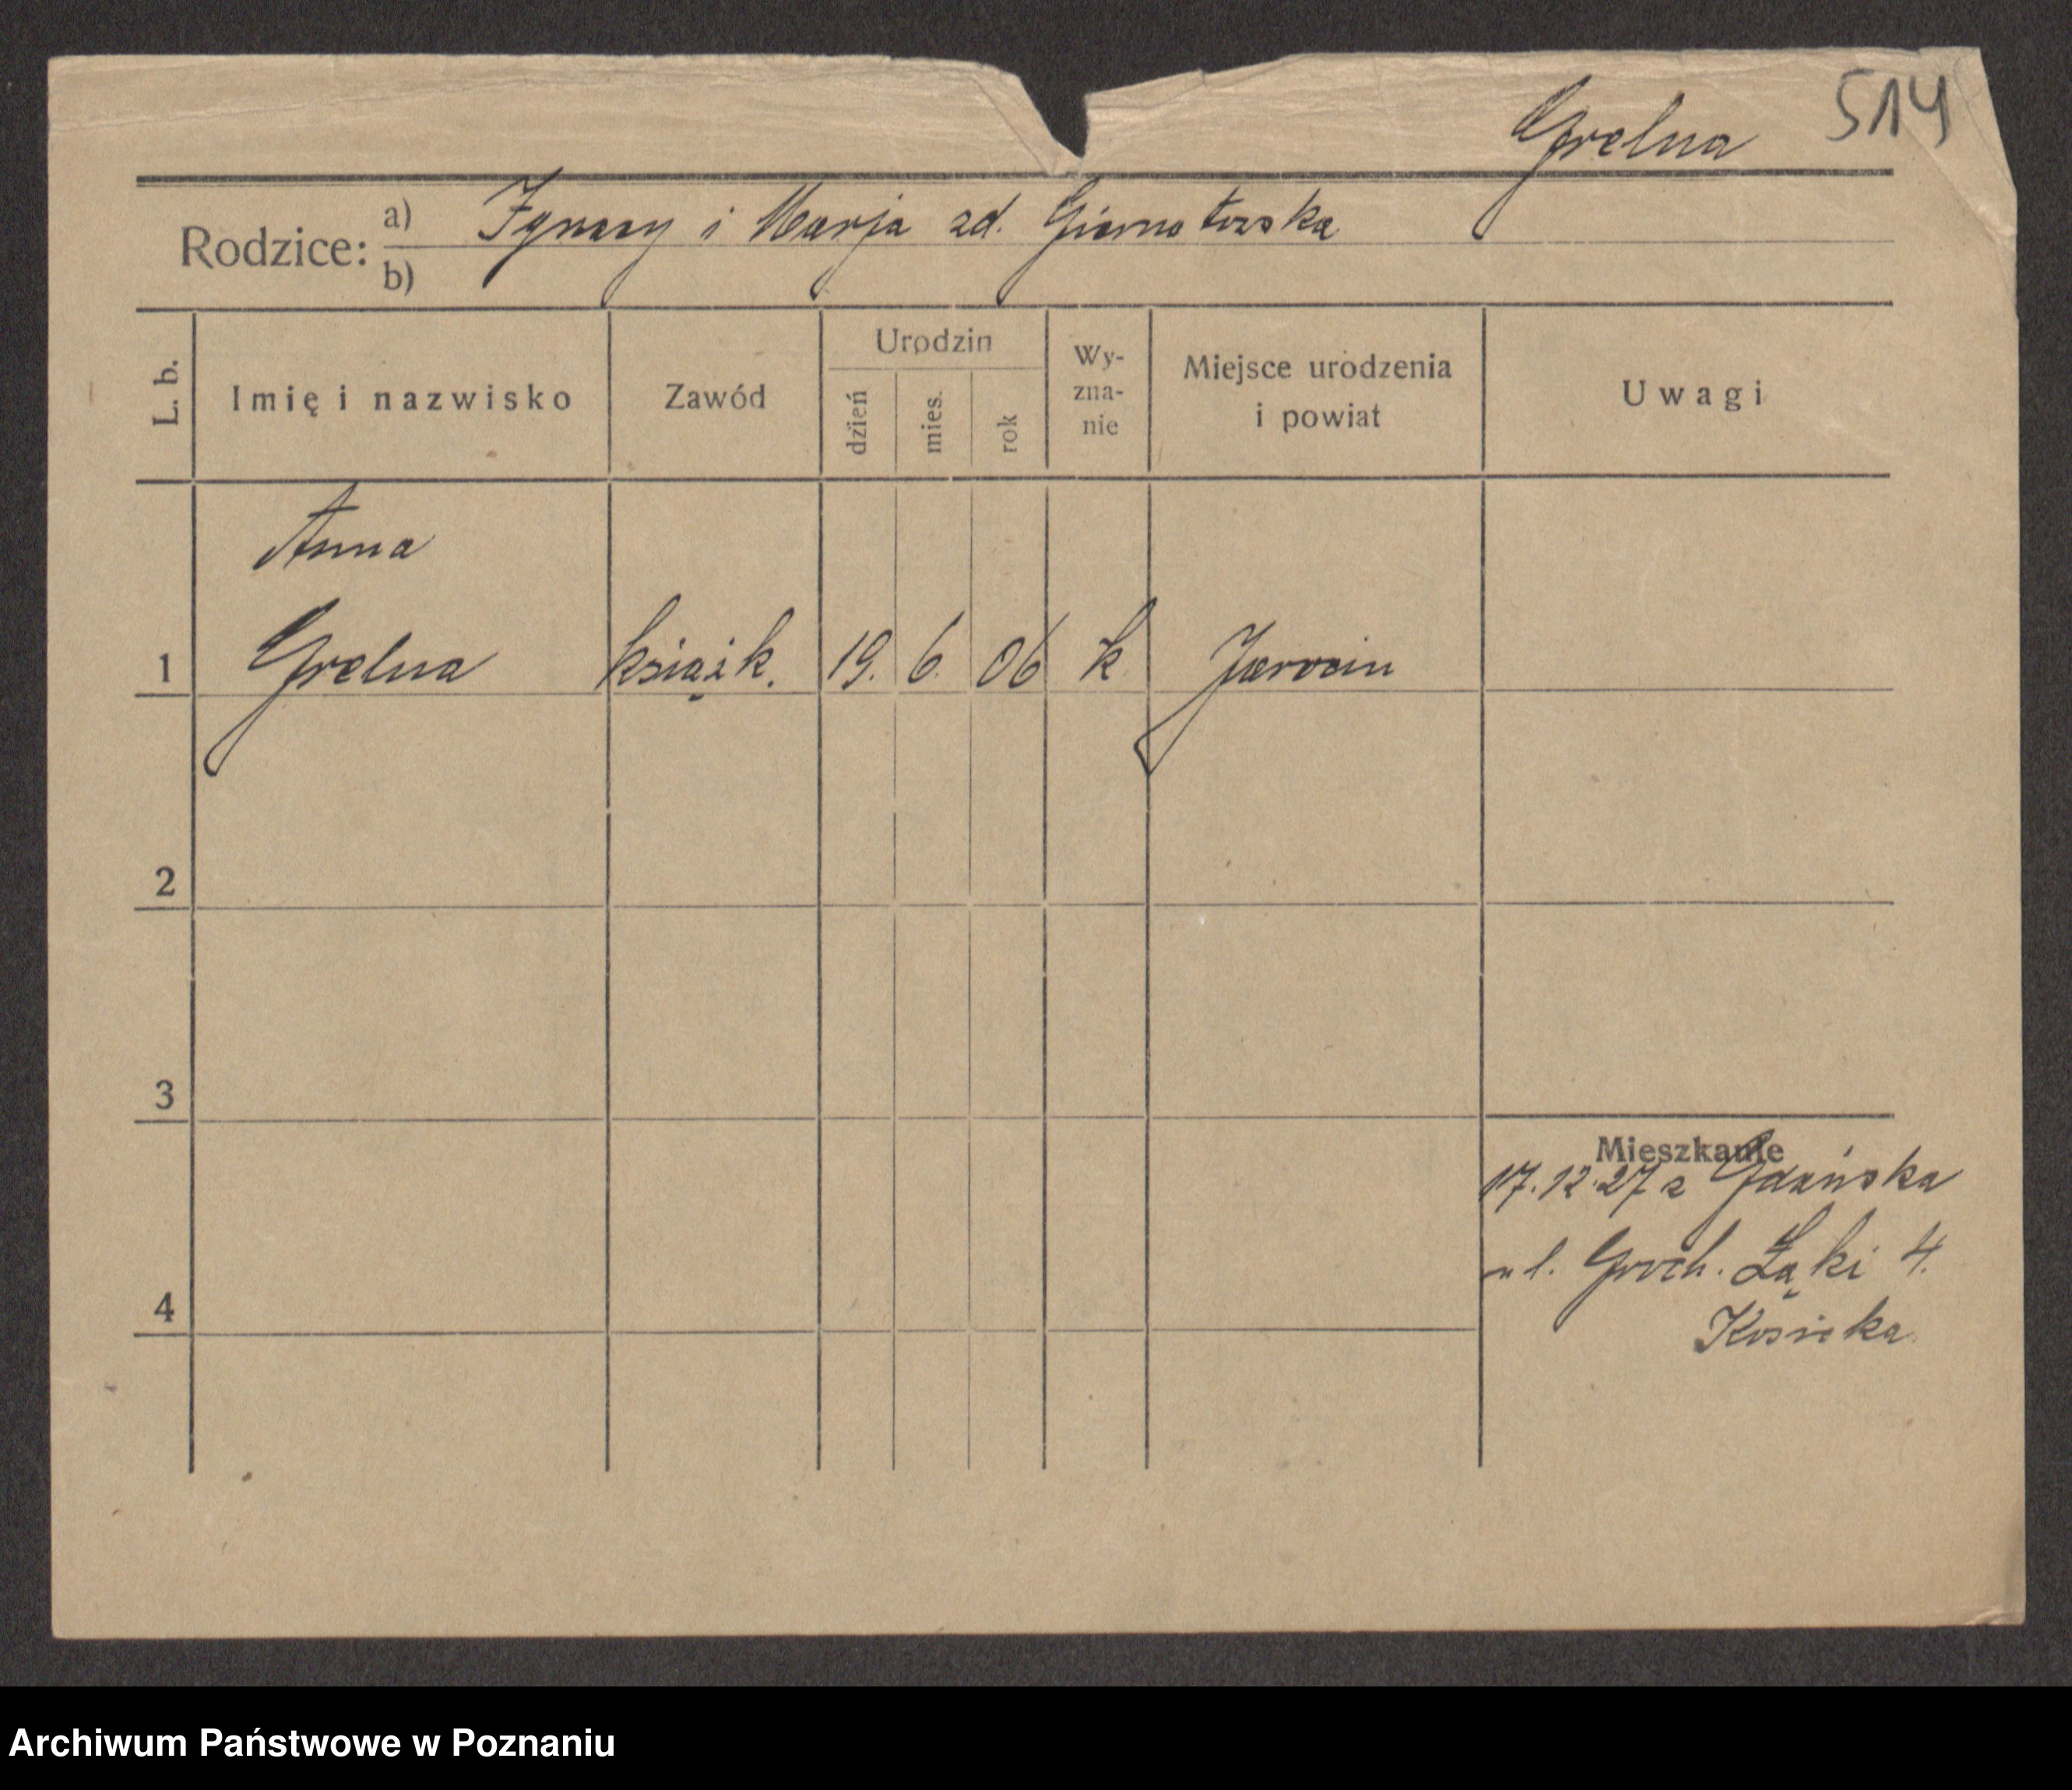 514
Grelna
Rodzice: a) Ignacy i Marja zd.
b)
L. b. Imię i nazwisko Zawód Urodzin dzień mies. rok Wy-zna-nie Miejsce urodzenia i powiat Uwagi
Anna
1 Grelna książk. 19. 6. 06 k Jarocin
2
3
Mieszkanie
17.12.27 z Gdańska
ul. Groch. Łąki 4.
4
Kosicka
Archiwum Państwowe w Poznaniu